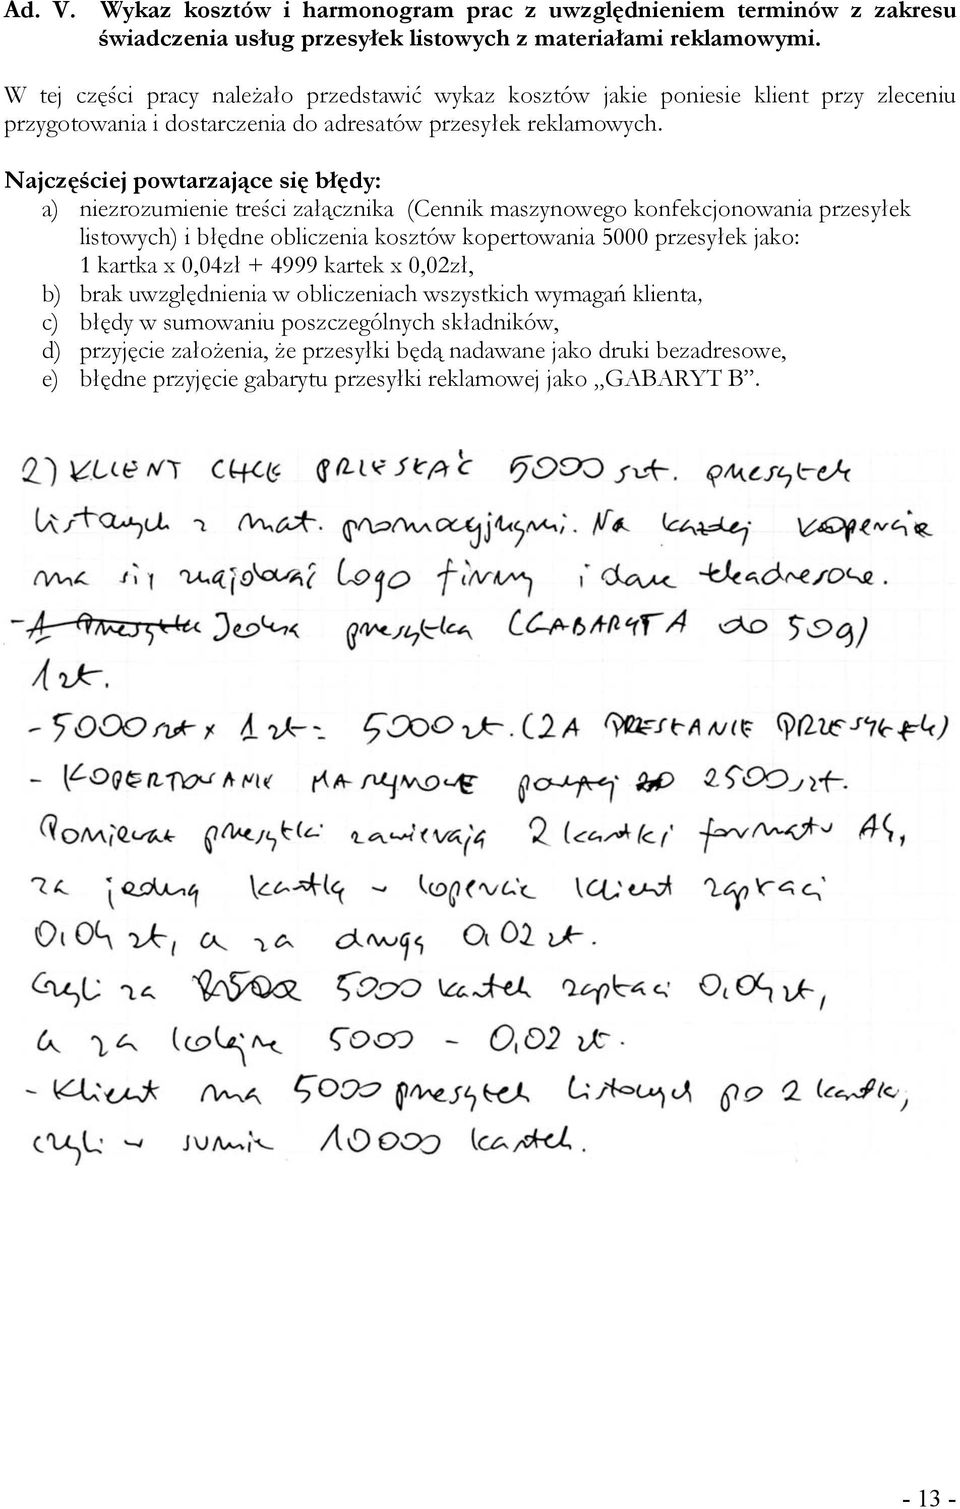 Ad. V. Wykaz kosztów i harmonogram prac z uwzględnieniem terminów z zakresu
świadczenia usług przesyłek listowych z materiałami reklamowymi.
W tej części pracy należało przedstawić wykaz kosztów jakie poniesie klient przy zleceniu
przygotowania i dostarczenia do adresatów przesyłek reklamowych.
Najczęściej powtarzające się błędy:
a) niezrozumienie treści załącznika (Cennik maszynowego konfekcjonowania przesyłek
listowych) i błędne obliczenia kosztów kopertowania 5000 przesyłek jako:
1 kartka x 0,04zł + 4999 kartek x 0,02zł,
b) brak uwzględnienia w obliczeniach wszystkich wymagań klienta,
c) błędy w sumowaniu poszczególnych składników,
d) przyjęcie założenia, że przesyłki będą nadawane jako druki bezadresowe,
e) błędne przyjęcie gabarytu przesyłki reklamowej jako „GABARYT B”.
2) KLIENT CHCE PRZESŁAĆ 5000 szt. przesyłek
listowych z mat. promocyjnymi. Na każdej kopercie
ma się znajdować logo firmy i dane teleadresowe.
- 1 Przesyłka Jedna przesyłka (GABARYT A do 50g)
1zł.
- 5000szt x 1zł = 5000zł. (ZA PRZESŁANIE PRZESYŁEK)
- KOPERTOWANIE MASZYNOWE 2500szt.
Ponieważ przesyłki zawierają 2 kartki formatu A4,
za jedną kartkę w kopercie klient zapłaci
0,04 zł, a za drugą 0,02 zł.
Czyli za 2500 5000 kartek zapłaci 0,04zł,
a za kolejne 5000 - 0,02 zł.
- Klient ma 5000 przesyłek listowych po 2 kartki,
czyli w sumie 10000 kartek.
- 13 -